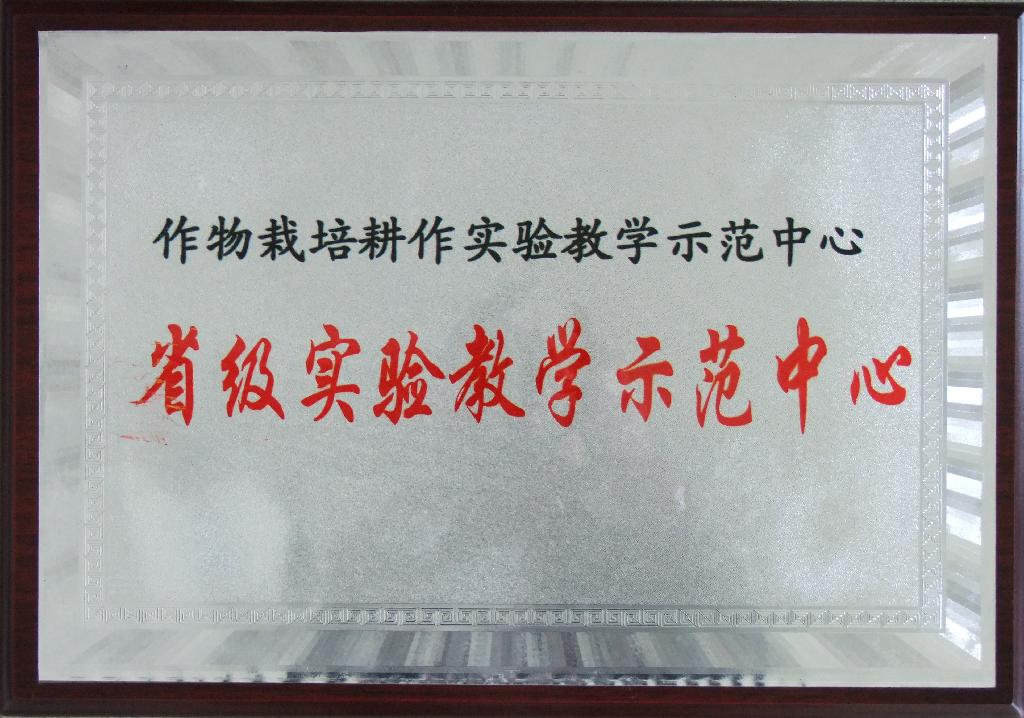 作物栽培耕作实验教学示范中心
省级实验教学示范中心